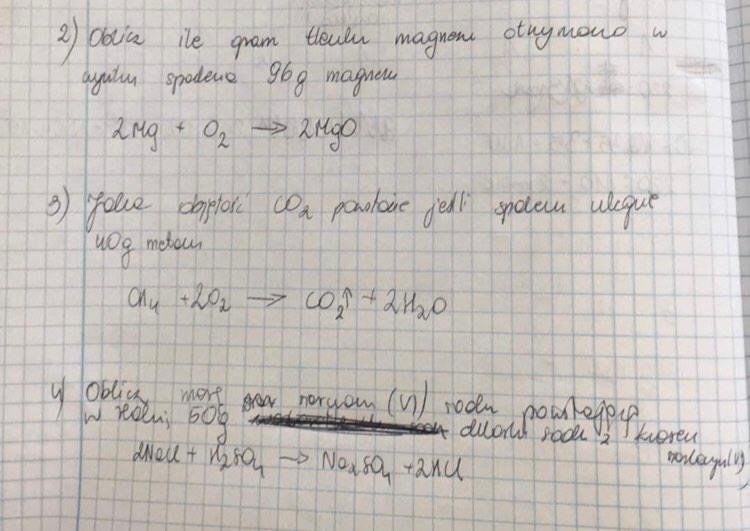 2) Oblicz ile gram tlenku magnezu otrzymano w
wyniku spalenia 96g magnezu
2Mg + O₂ → 2MgO
3) Jaka objętość CO₂ powstanie jeśli spaleniu ulegnie
40g metanu
CH₄ + 2O₂ → CO₂↑ + 2H₂O
4) Oblicz masę siarczanu (VI) sodu powstającą
w reakcji 50g chlorku sodu z kwasem
siarkowym(VI)
2NaCl + H₂SO₄ → Na₂SO₄ + 2HCl